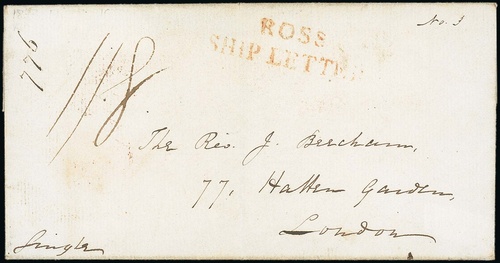 No. 3
776
ROSS
SHIP LETTER
1/8
The Rev. J. Beecham,
77, Hatten Garden,
London
Single